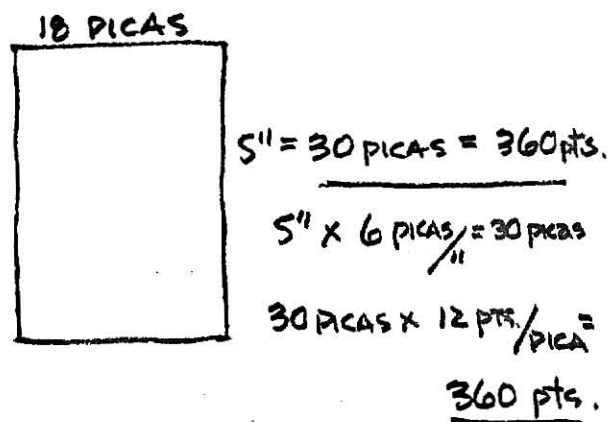 18 PICAS
5" = 30 PICAS = 360 pts.
5" x 6 PICAS/" = 30 picas
30 PICAS x 12 PTS./PICA =
360 pts.